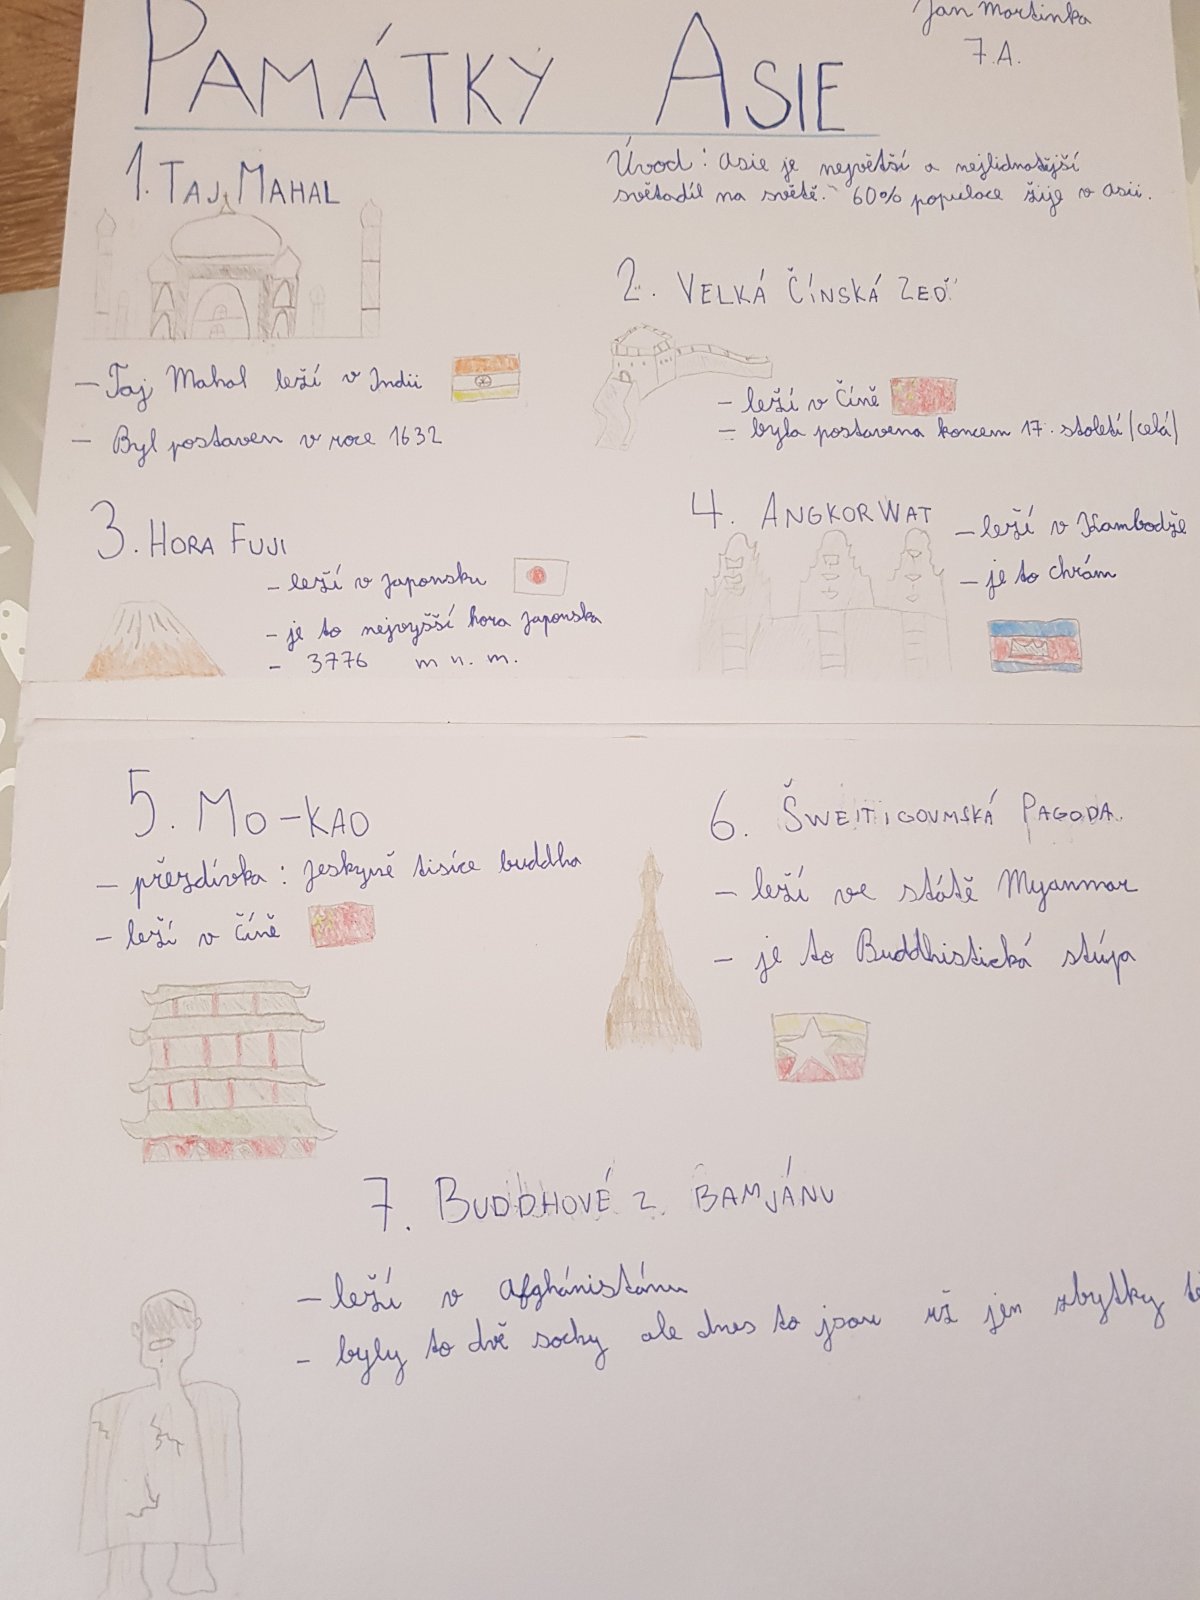 Jan Martinka
7.A.
PAMÁTKY ASIE
Úvod: Asie je největší a nejlidnatější
světadíl na světě. 60% populace žije v Asii.
1. TAJ MAHAL
- Taj Mahal leží v Indii
- Byl postaven v roce 1632
2. VELKÁ ČÍNSKÁ ZEĎ
- leží v Číně
- byla postavena koncem 17. století (celá)
3. HORA FUJI
- leží v Japonsku
- je to nejvyšší hora Japonska
- 3776 m n. m.
4. ANGKOR WAT
- leží v Kambodže
- je to chrám
5. MO-KAO
- přezdívka: Jeskyně tisíce buddha
- leží v Číně
6. PAGODA
- leží ve státě Myanmar
- je to Buddhistická stúpa
7. BUDDHOVÉ Z BAMJÁNU
- leží v Afghánistánu
- byly to dvě sochy ale dnes to jsou už jen zbytky